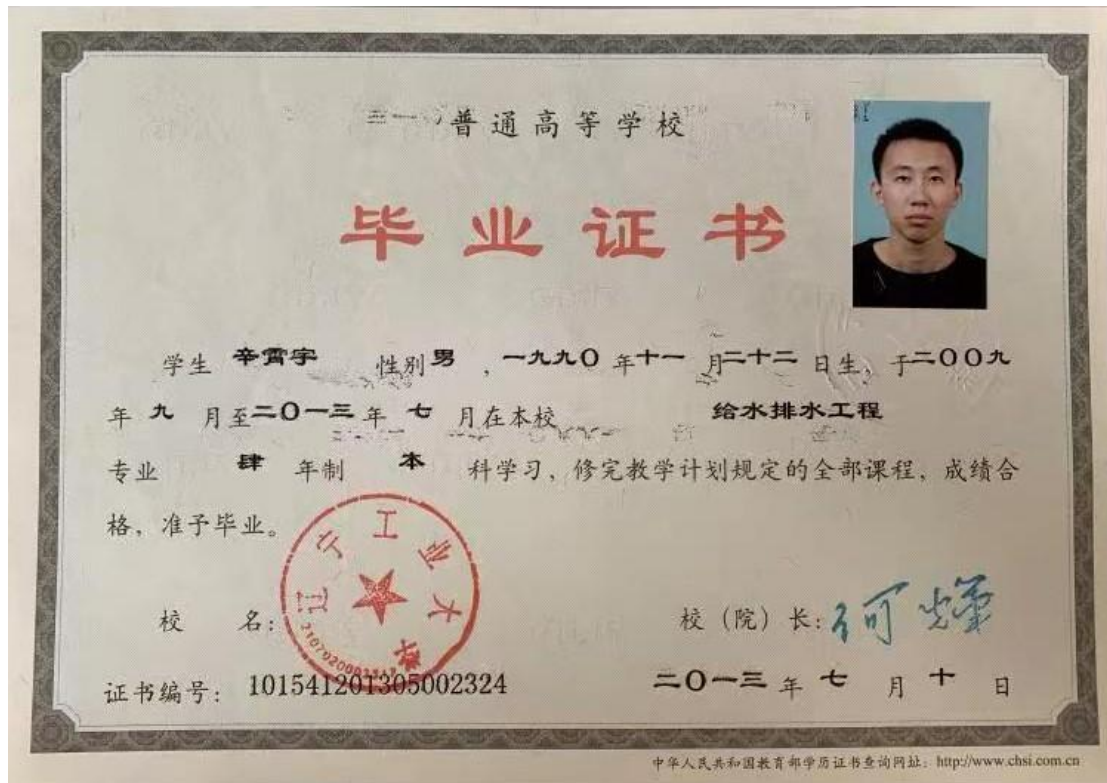 普通高等学校
毕业证书
学生 辛霄宇 性别 男 ，一九九〇 年 十一 月 二十二 日生，于二〇〇九
年 九 月至二〇一三 年 七 月在本校 给水排水工程
专业 肆 年制 本 科学习，修完教学计划规定的全部课程，成绩合
格，准予毕业。
辽宁工业大学
校 名：
校（院）长：
证书编号：101541201305002324
二〇一三 年 七 月 十 日
中华人民共和国教育部学历证书查询网址：http://www.chsi.com.cn